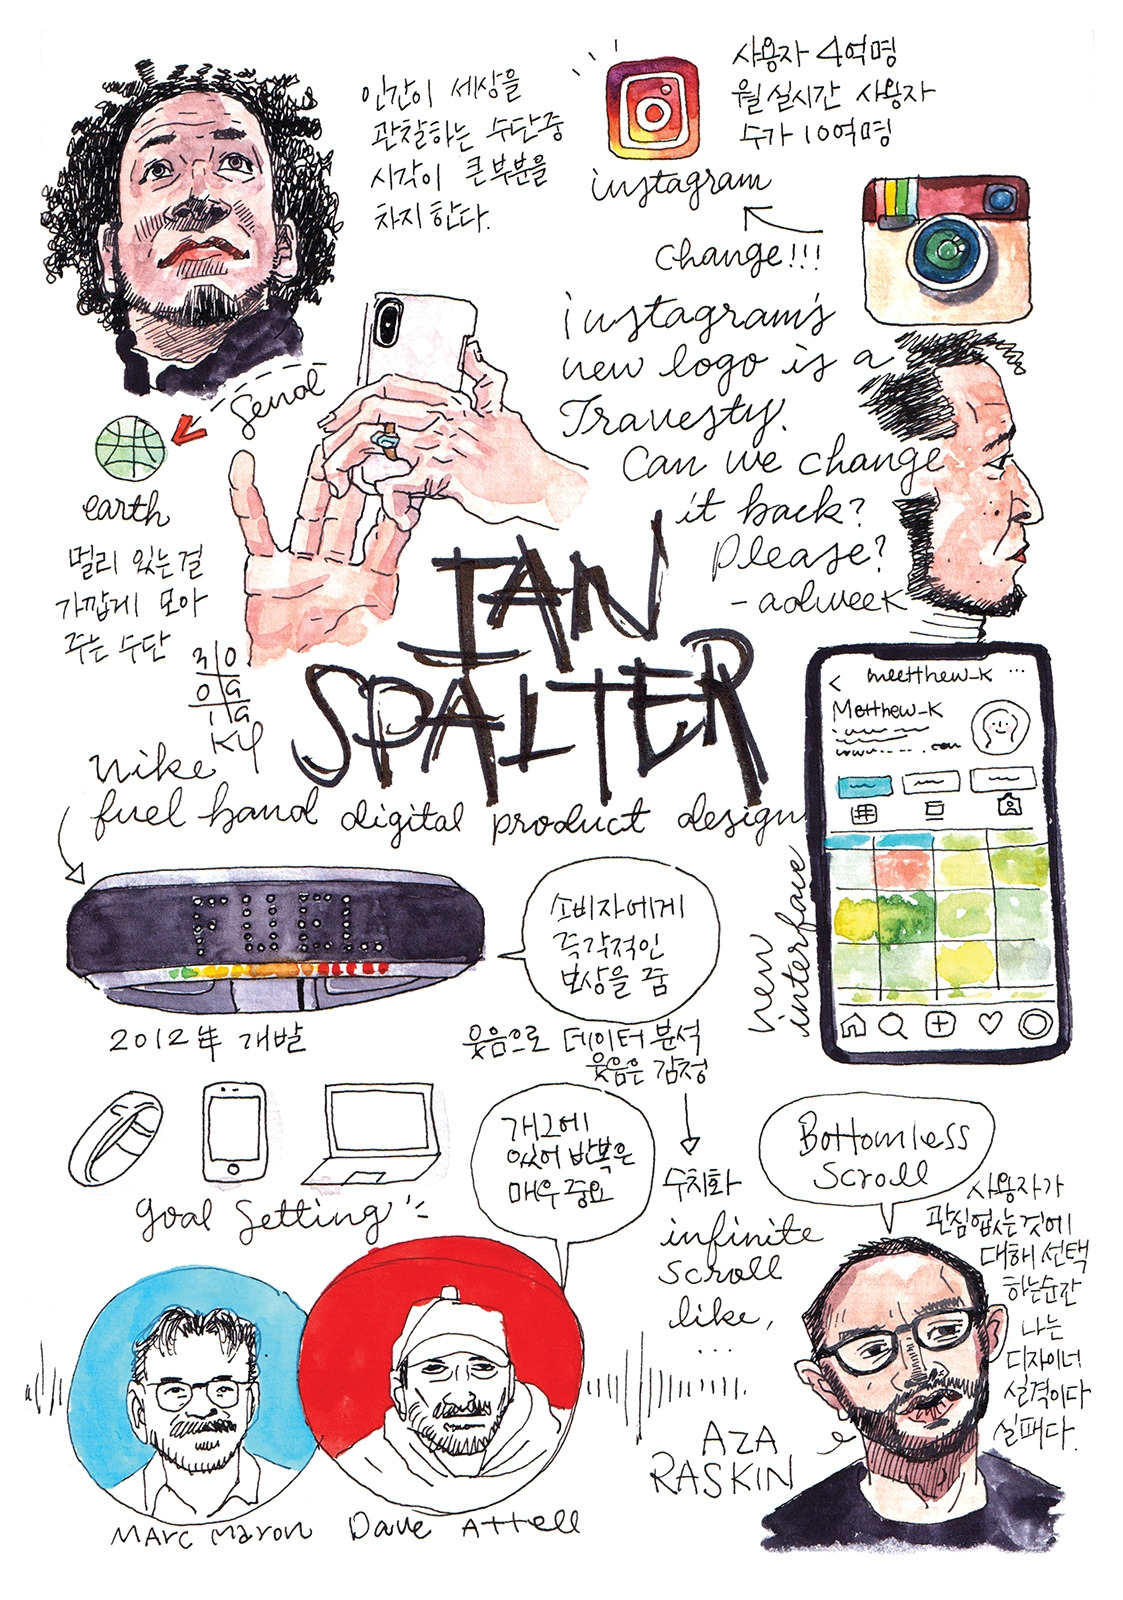 인간이 세상을
관찰하는 수단중
시각이 큰 부분을
차지 한다.
사용자 4억명
월 실시간 사용자
수가 10억명
instagram
change!!!
instagram's
new logo is a
Travesty.
Can we change
it back?
Please?
- adweek
earth
멀리 있는걸
가깝게 모아
주는 수단
IAN
SPALTER
Nike
fuel band digital product design
FUEL
2012年 개발
소비자에게
즉각적인
보상을 줌
meetthew_K ...
Metthew_K
new
interface
웃음으로 데이터 분석
웃음은 감정
수치화
goal setting
개그에
있어 반복은
매우 중요
infinite
scroll
like,
...
Bottomless
Scroll
사용자가
관심없는것에
대해 선택
하는순간
나는
디자이너
실격이다
실패다.
AZA
RASKIN
Marc Maron
Dave Attell